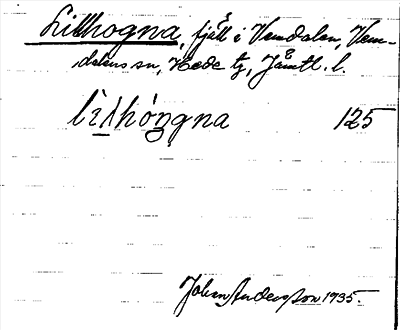 Lillhogna, fjäll i Vemdalen, Vem-
dalens sn, Hede tg, Jämtl. l.
lìlhóŋgna 125
Johan Andersson 1935.